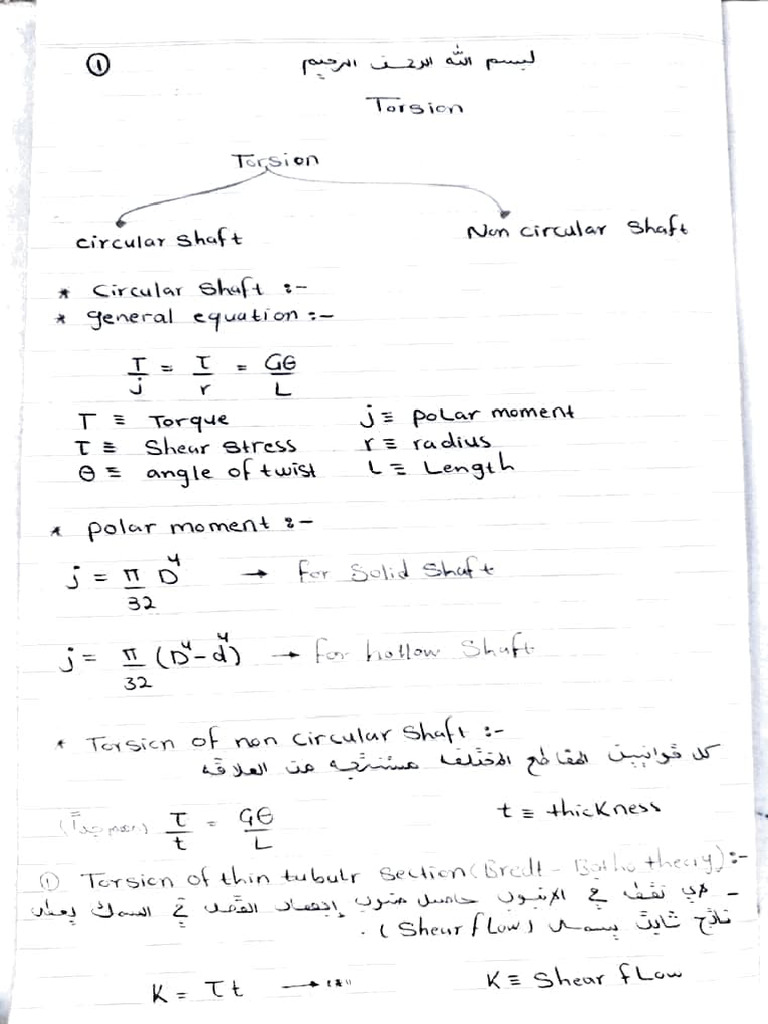 ①
بسم الله الرحمن الرحيم
Torsion
Torsion
circular shaft
Non circular shaft
* Circular shaft :-
* general equation :-
T/j = τ/r = Gθ/L
T ≡ Torque
j ≡ polar moment
τ ≡ Shear stress
r ≡ radius
θ ≡ angle of twist
L ≡ Length
* polar moment :-
j = π/32 D⁴ → for solid shaft
j = π/32 (D⁴ - d⁴) → for hollow shaft
* Torsion of non circular shaft :-
كل قوانين المقاطع المختلفه مستنتجه من العلاقه
(مهم جداً) τ/t = Gθ/L
t ≡ thickness
① Torsion of thin tubulr section (Bredt - Batho theory) :-
- في الانبوب حاصل ضرب إجهاد القص في السمك يعطي
ناتج ثابت يسمى (Shear flow) .
K = τt →
K ≡ Shear flow